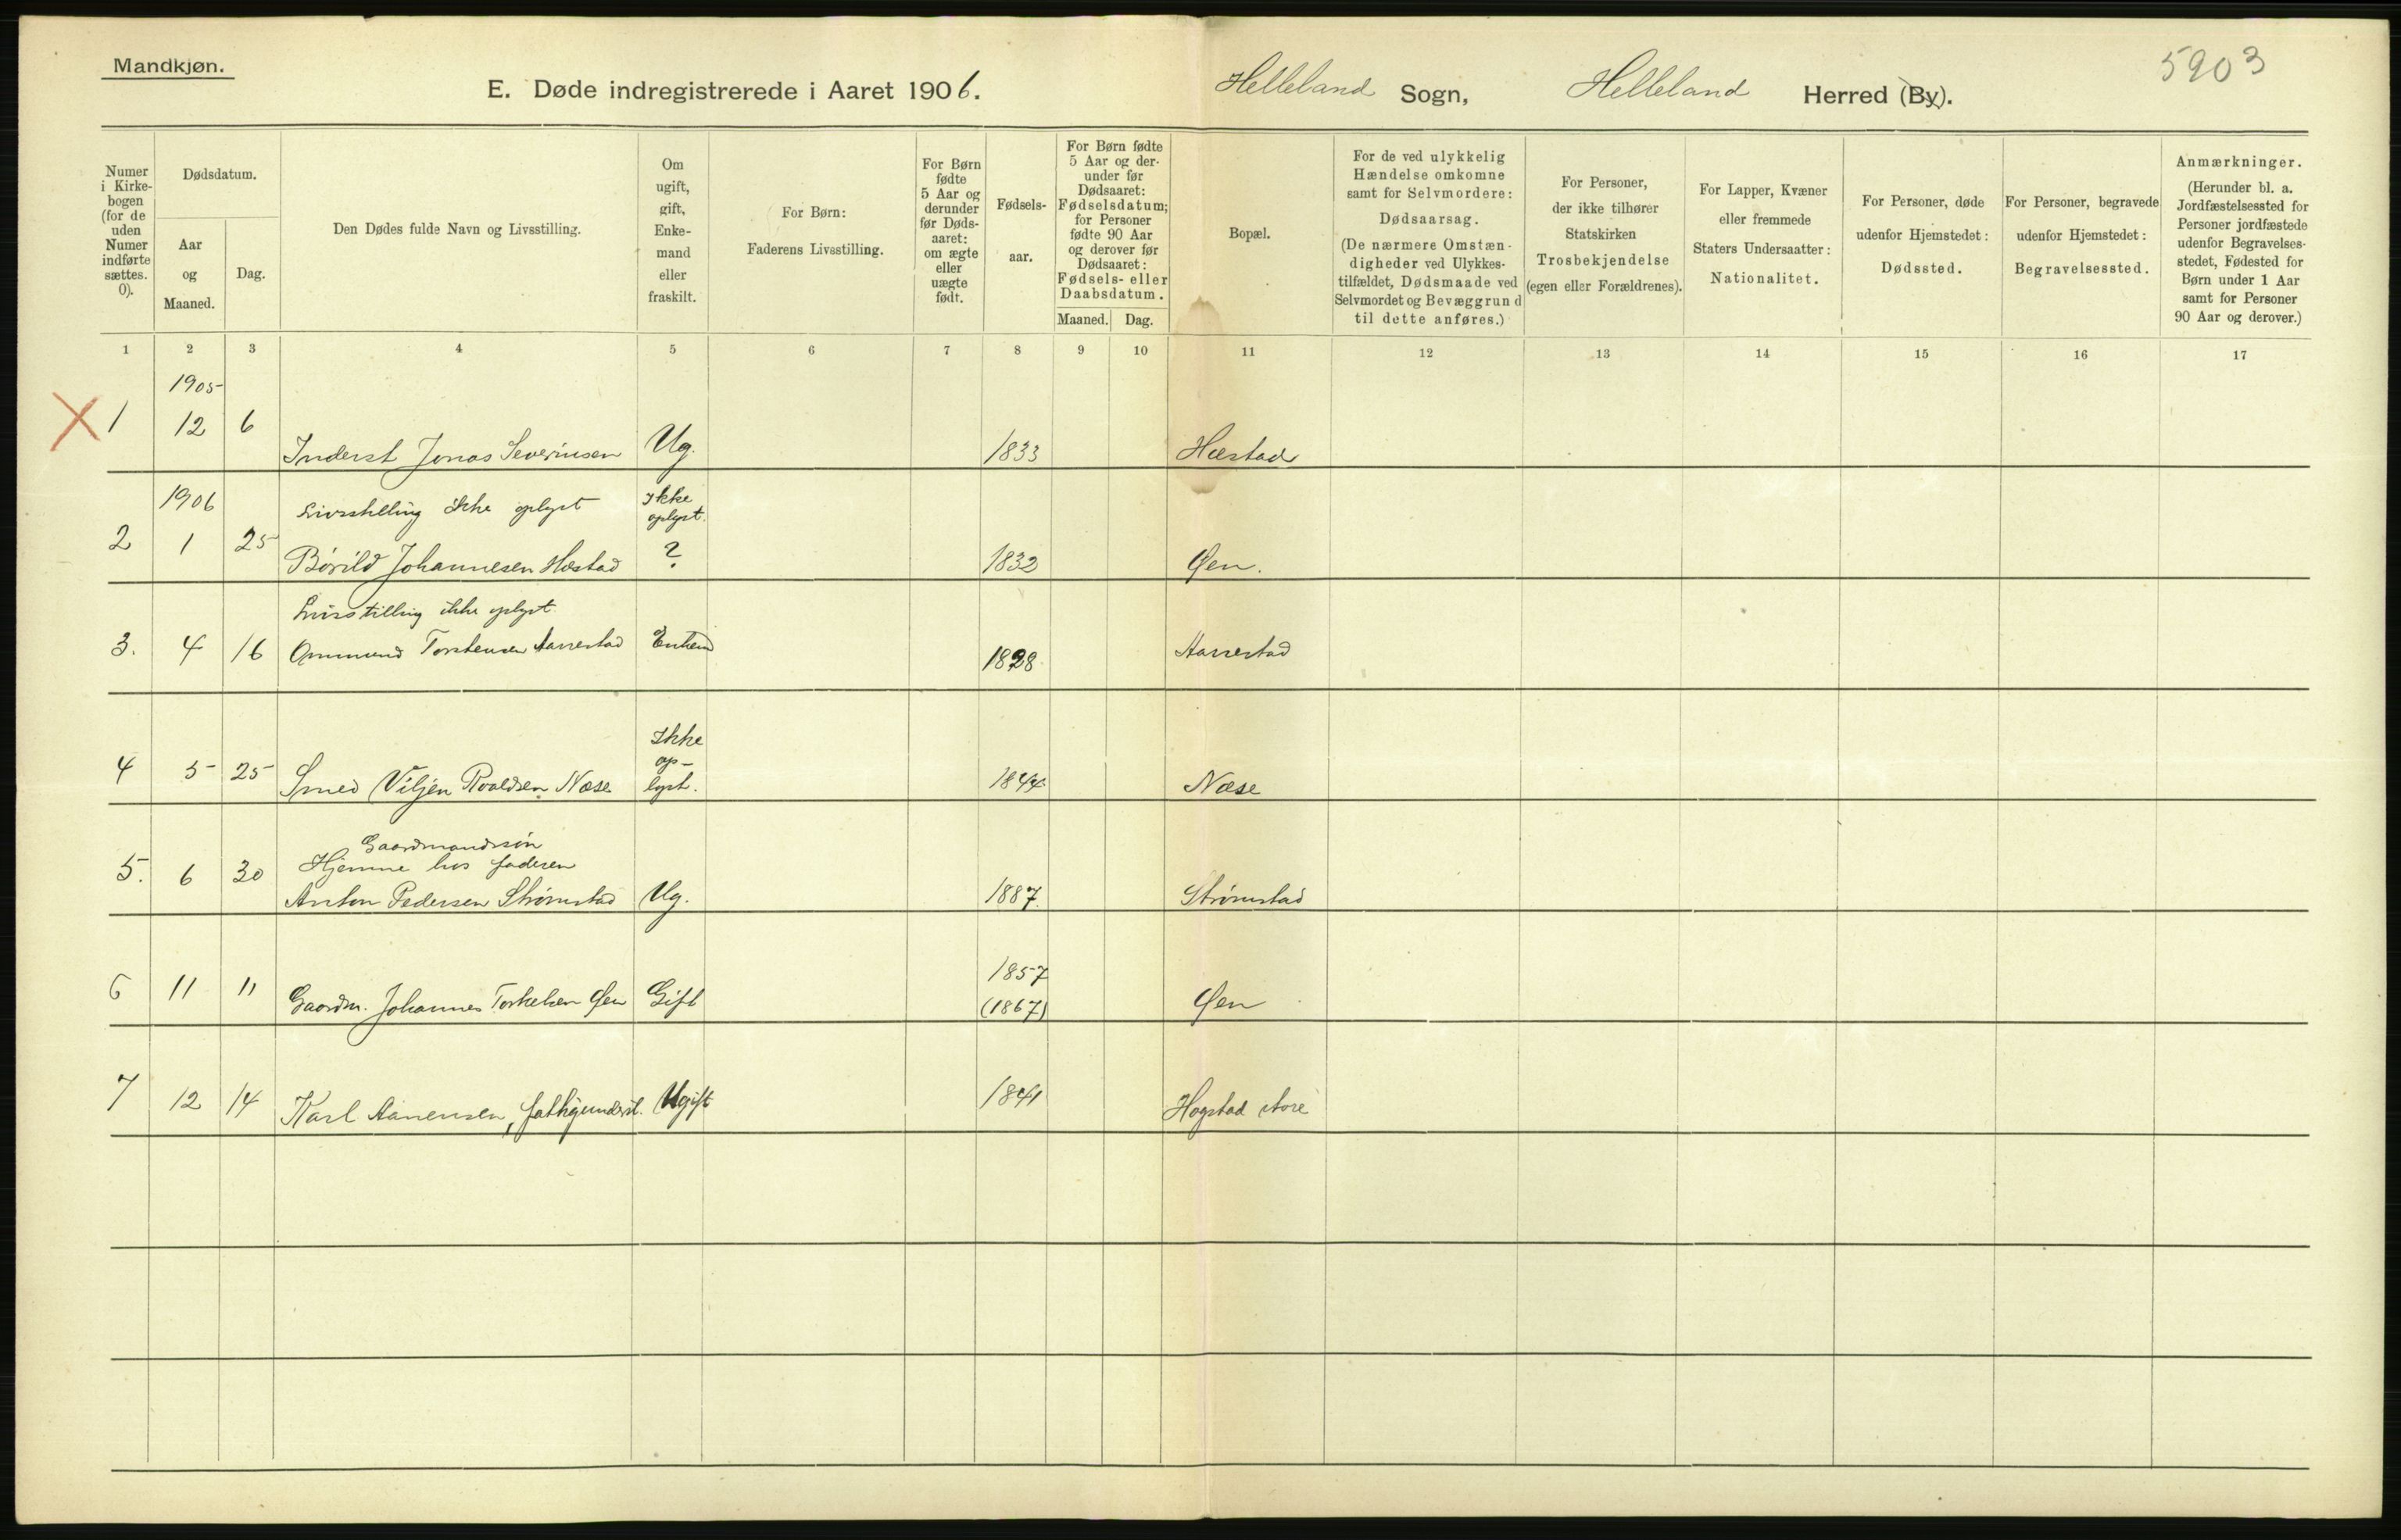 Mandkjøn.
E. Døde indregistrerede i Aaret 1906.
Helleland Sogn, Helleland Herred (By).
5903
Numer i Kirkebogen (for de uden Numer indførte sættes. 0).
Dødsdatum.
Aar og Maaned.
Dag.
Den Dødes fulde Navn og Livsstilling.
Om ugift, gift, Enkemand eller fraskilt.
For Børn:
Faderens Livsstilling.
For Børn fødte 5 Aar og derunder før Dødsaaret: om ægte eller uægte født.
Fødselsaar.
For Børn fødte 5 Aar og derunder før Dødsaaret: Fødselsdatum; for Personer fødte 90 Aar og derover før Dødsaaret: Fødsels- eller Daabsdatum.
Maaned. Dag.
Bopæl.
For de ved ulykkelig Hændelse omkomne samt for Selvmordere:
Dødsaarsag.
(De nærmere Omstændigheder ved Ulykkestilfældet, Dødsmaade ved Selvmordet og Bevæggrund til dette anføres.)
For Personer, der ikke tilhører Statskirken
Trosbekjendelse
(egen eller Forældrenes).
For Lapper, Kvæner eller fremmede Staters Undersaatter:
Nationalitet.
For Personer, døde udenfor Hjemstedet:
Dødssted.
For Personer, begravede udenfor Hjemstedet:
Begravelsessted.
Anmærkninger.
(Herunder bl. a. Jordfæstelsessted for Personer jordfæstede udenfor Begravelsesstedet, Fødested for Børn under 1 Aar samt for Personer 90 Aar og derover.)
1 2 3 4 5 6 7 8 9 10 11 12 13 14 15 16 17
1905
1 12 6 Inderst Jonas Severinsen Ug. 1833 Hæstad
1906 Livsstilling ikke oplyst Ikke oplyst.
2 1 25 Børild Johannesen Hæstad ? 1832 Øen.
Livsstilling ikke oplyst.
3. 4 16 Ommund Torstensen Aarrestad Enkem 1828 Aarrestad
Ikke
op-
4 5 25 Smed Viljen Roaldsen Næse lyst. 1844 Næse
Gaardmandssøn
Hjemme hos faderen
5. 6 30 Anton Pedersen Strømstad Ug. 1887. Strømstad
1857
6 11 11 Gaardm. Johannes Torkelsen Øen Gift (1867) Øen
7 12 14 Karl Aanensen, fattigunderst. Ugift 1841 Hogstad store